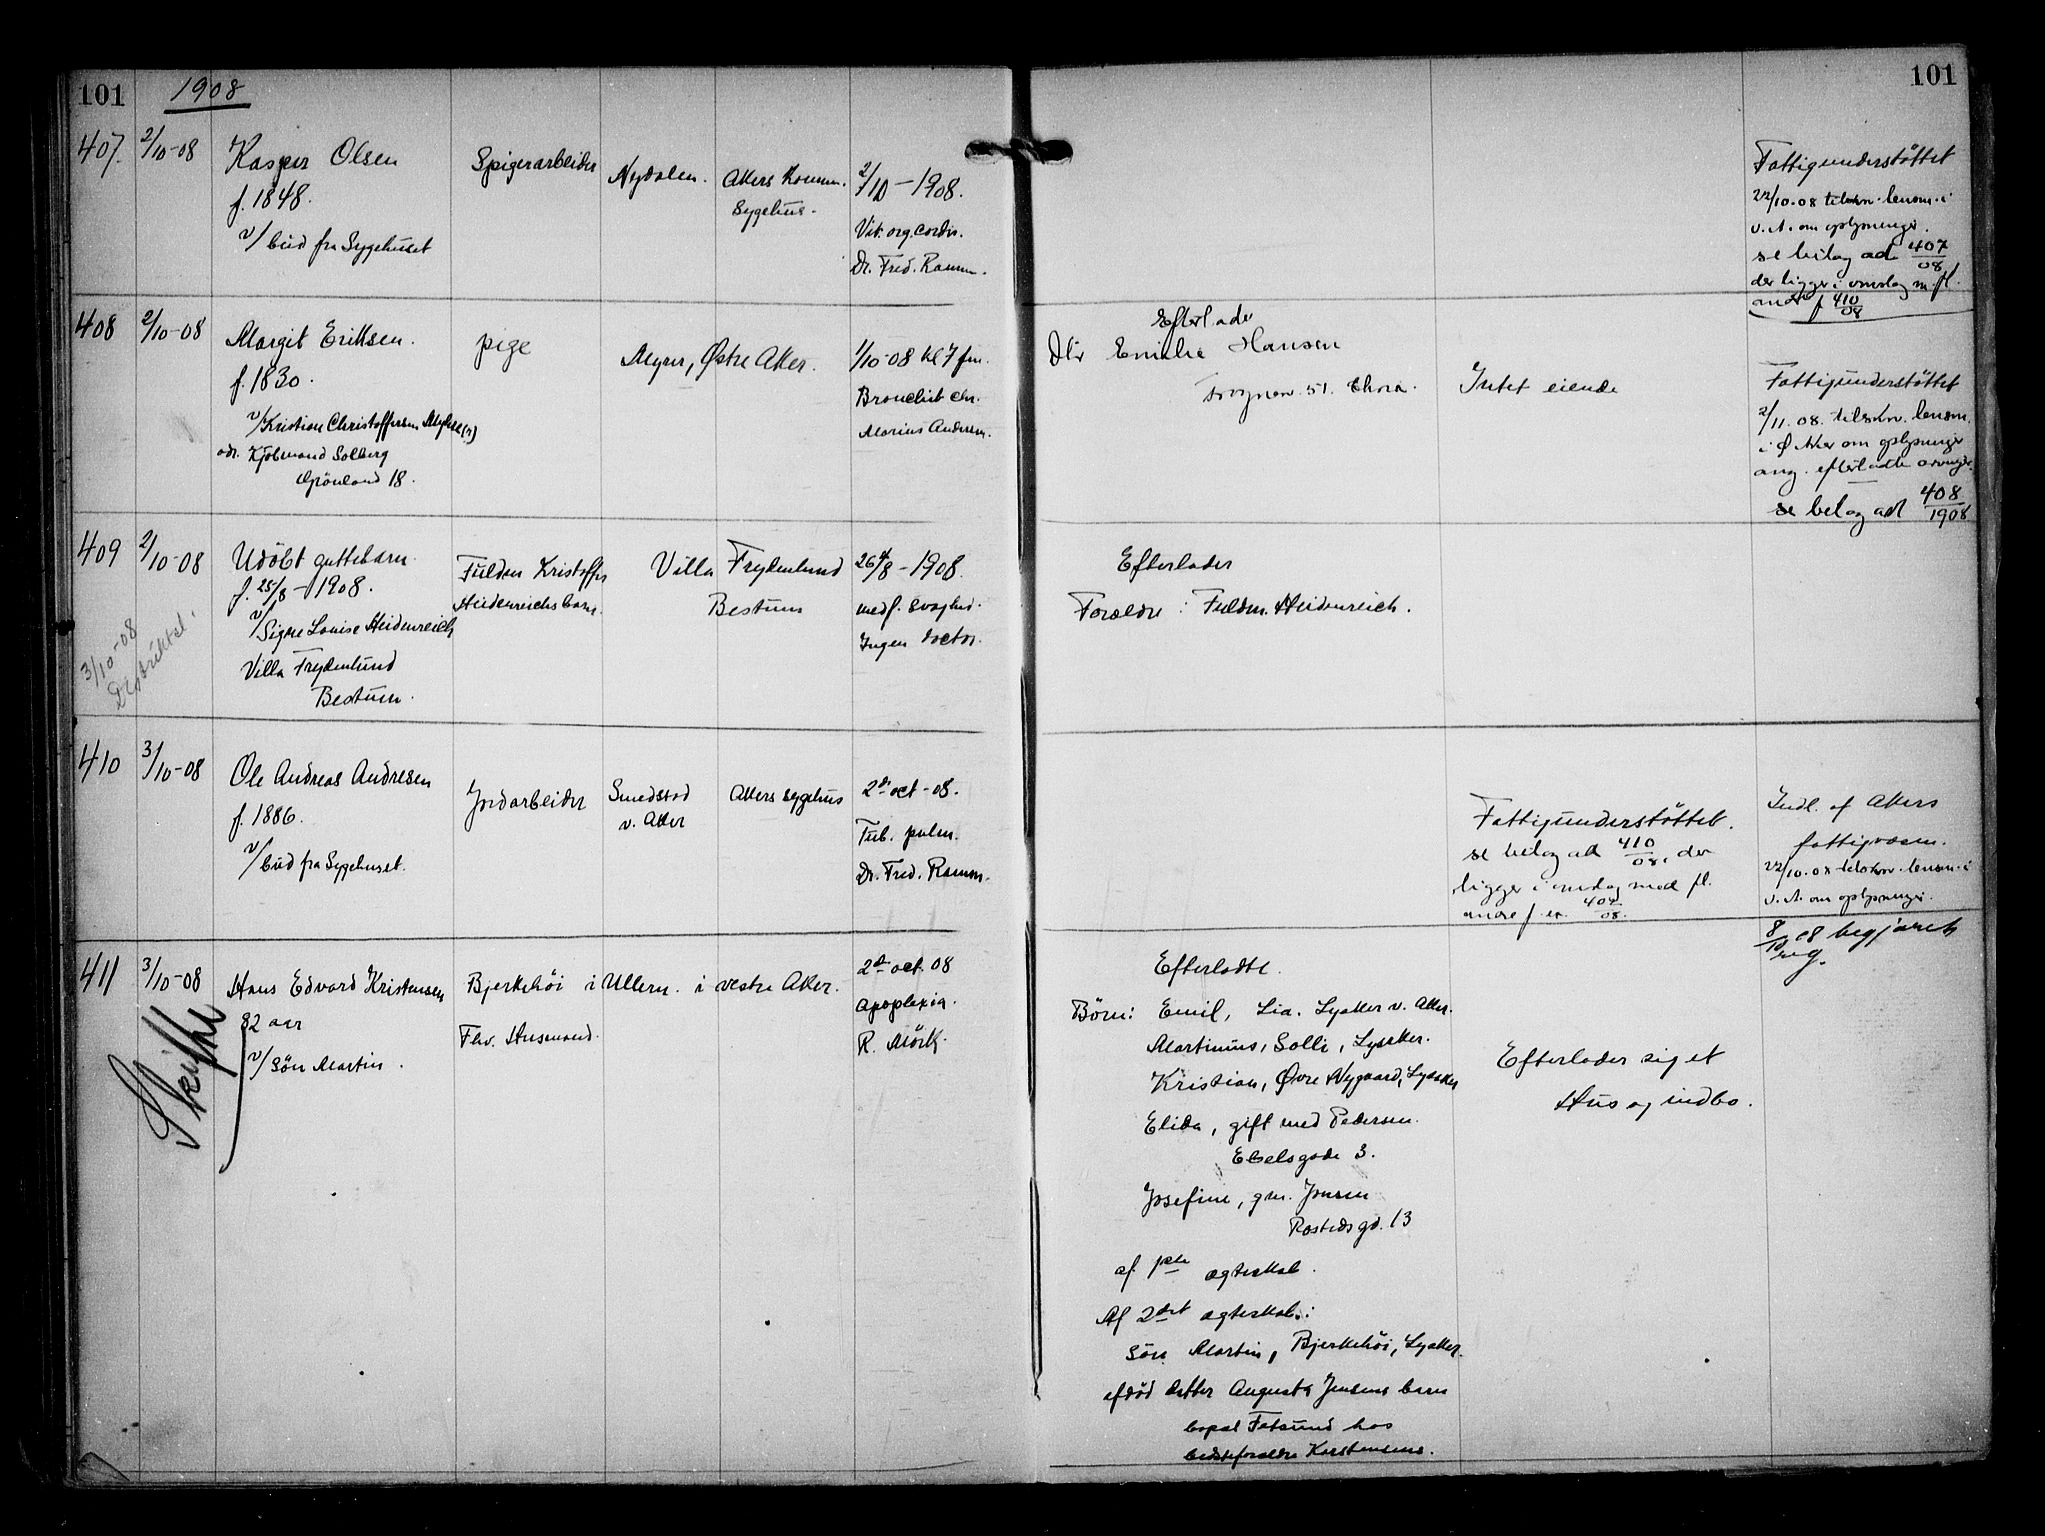 101
1908
101
407.
2/10-08
Kasper Olsen
f. 1848.
v/ bud fra Sygehuset
Spigerarbeider
Nydalen.
Akers Komm.
Sygehus.
2/10 - 1908.
Vit. org. cordis.
Dr. Fred. Ramm.
Fattigunderstöttet
22/10-08 tilskr. lensm. i
v. A. om oplysninger.
se bilag ad 407/08
der ligger i omslag m. fl.
andre f 410/08
408
2/10-08
Margit Eriksen.
f. 1830.
v/ Kristian Christoffersen Myhre (?)
adr. Kjöbmand Solberg
Grönland 18.
pige
Myrer, Østre Aker.
1/10-08 kl 7 fm.
Bronchit chr.
Marius Andersen.
Efterlader
Emilie Hansen
51.
Intet eiende
Fattigunderstöttet
2/11.08. tilskr. lensm.
i Ø Aker om oplysninger
ang. efterladte arvinger.
se bilag ad 408/1908
409
2/10-08
3/10-08
Udöbt guttebarn
f. 25/8 - 1908.
v/ Signe Louise Heidenreich
Villa Frydenlund
Bestum.
Fuldm Kristoffer
Heidenreichs barn.
Villa Frydenlund
Bestum
26/8 - 1908.
medf. svaghed.
Ingen doctor.
Efterlader
Forældre: Fuldm. Heidenreich.
410
3/10-08
Ole Andreas Andresen
f. 1886.
v/ bud fra Sygehuset.
Jordarbeider
Smedstad
v. Aker
Akers sygehus
2den oct - 08.
Tub. pulm.
Dr. Fred. Ramm.
Fattigunderstöttet.
se bilag ad 410/08, der
ligger i omslag med fl.
andre f. ex. 407/08.
Indl. af Akers
fattigvæsen.
22/10-08 tilskr. lensm. i
v. A. om oplysninger.
411
3/10-08
Skifte
Hans Edvard Kristensen
82 aar
v/ Sön Martin.
Bjerkehöi i Ullern. i vestre Aker.
Fhv. Husmand.
2den oct. 08
Apoplexia.
R. Mörk.
Efterladte.
Börn: Emil, Lia. Lysaker v. Aker.
Martinius, Solli, Lysaker.
Kristian, Øvre Nygaard, Lysaker
Elida, gift med Pedersen.
Ebelsgade 3.
Josefine, gm. Jensen
Rostedsgd. 13
af 1ste ægteskab.
Af 2det ægteskab:
Sön Martin, Bjerkehöi, Lysaker.
afdöd datter Augusta Jensens barn
bopæl Fetsund hos
bedsteforældre Karstensens.
Efterlader sig et
Hus og indbo.
8/10 08 begjæret
reg.